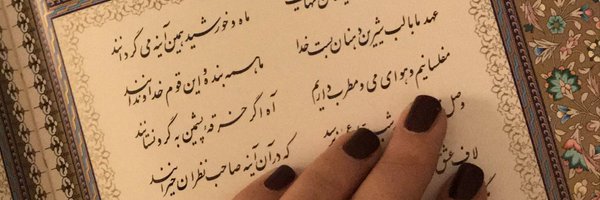 ماه و خورشید همین آینه می گردانند
عهد ما با لب شیرین دهنان بست خدا
ما همه بنده و این قوم خداوندانند
مفلسانیم و هوای می و مطرب داریم
آه اگر خرقه پشمین به گرو نستانند
وصل
که در آن آینه صاحب نظران حیرانند
لاف عشق